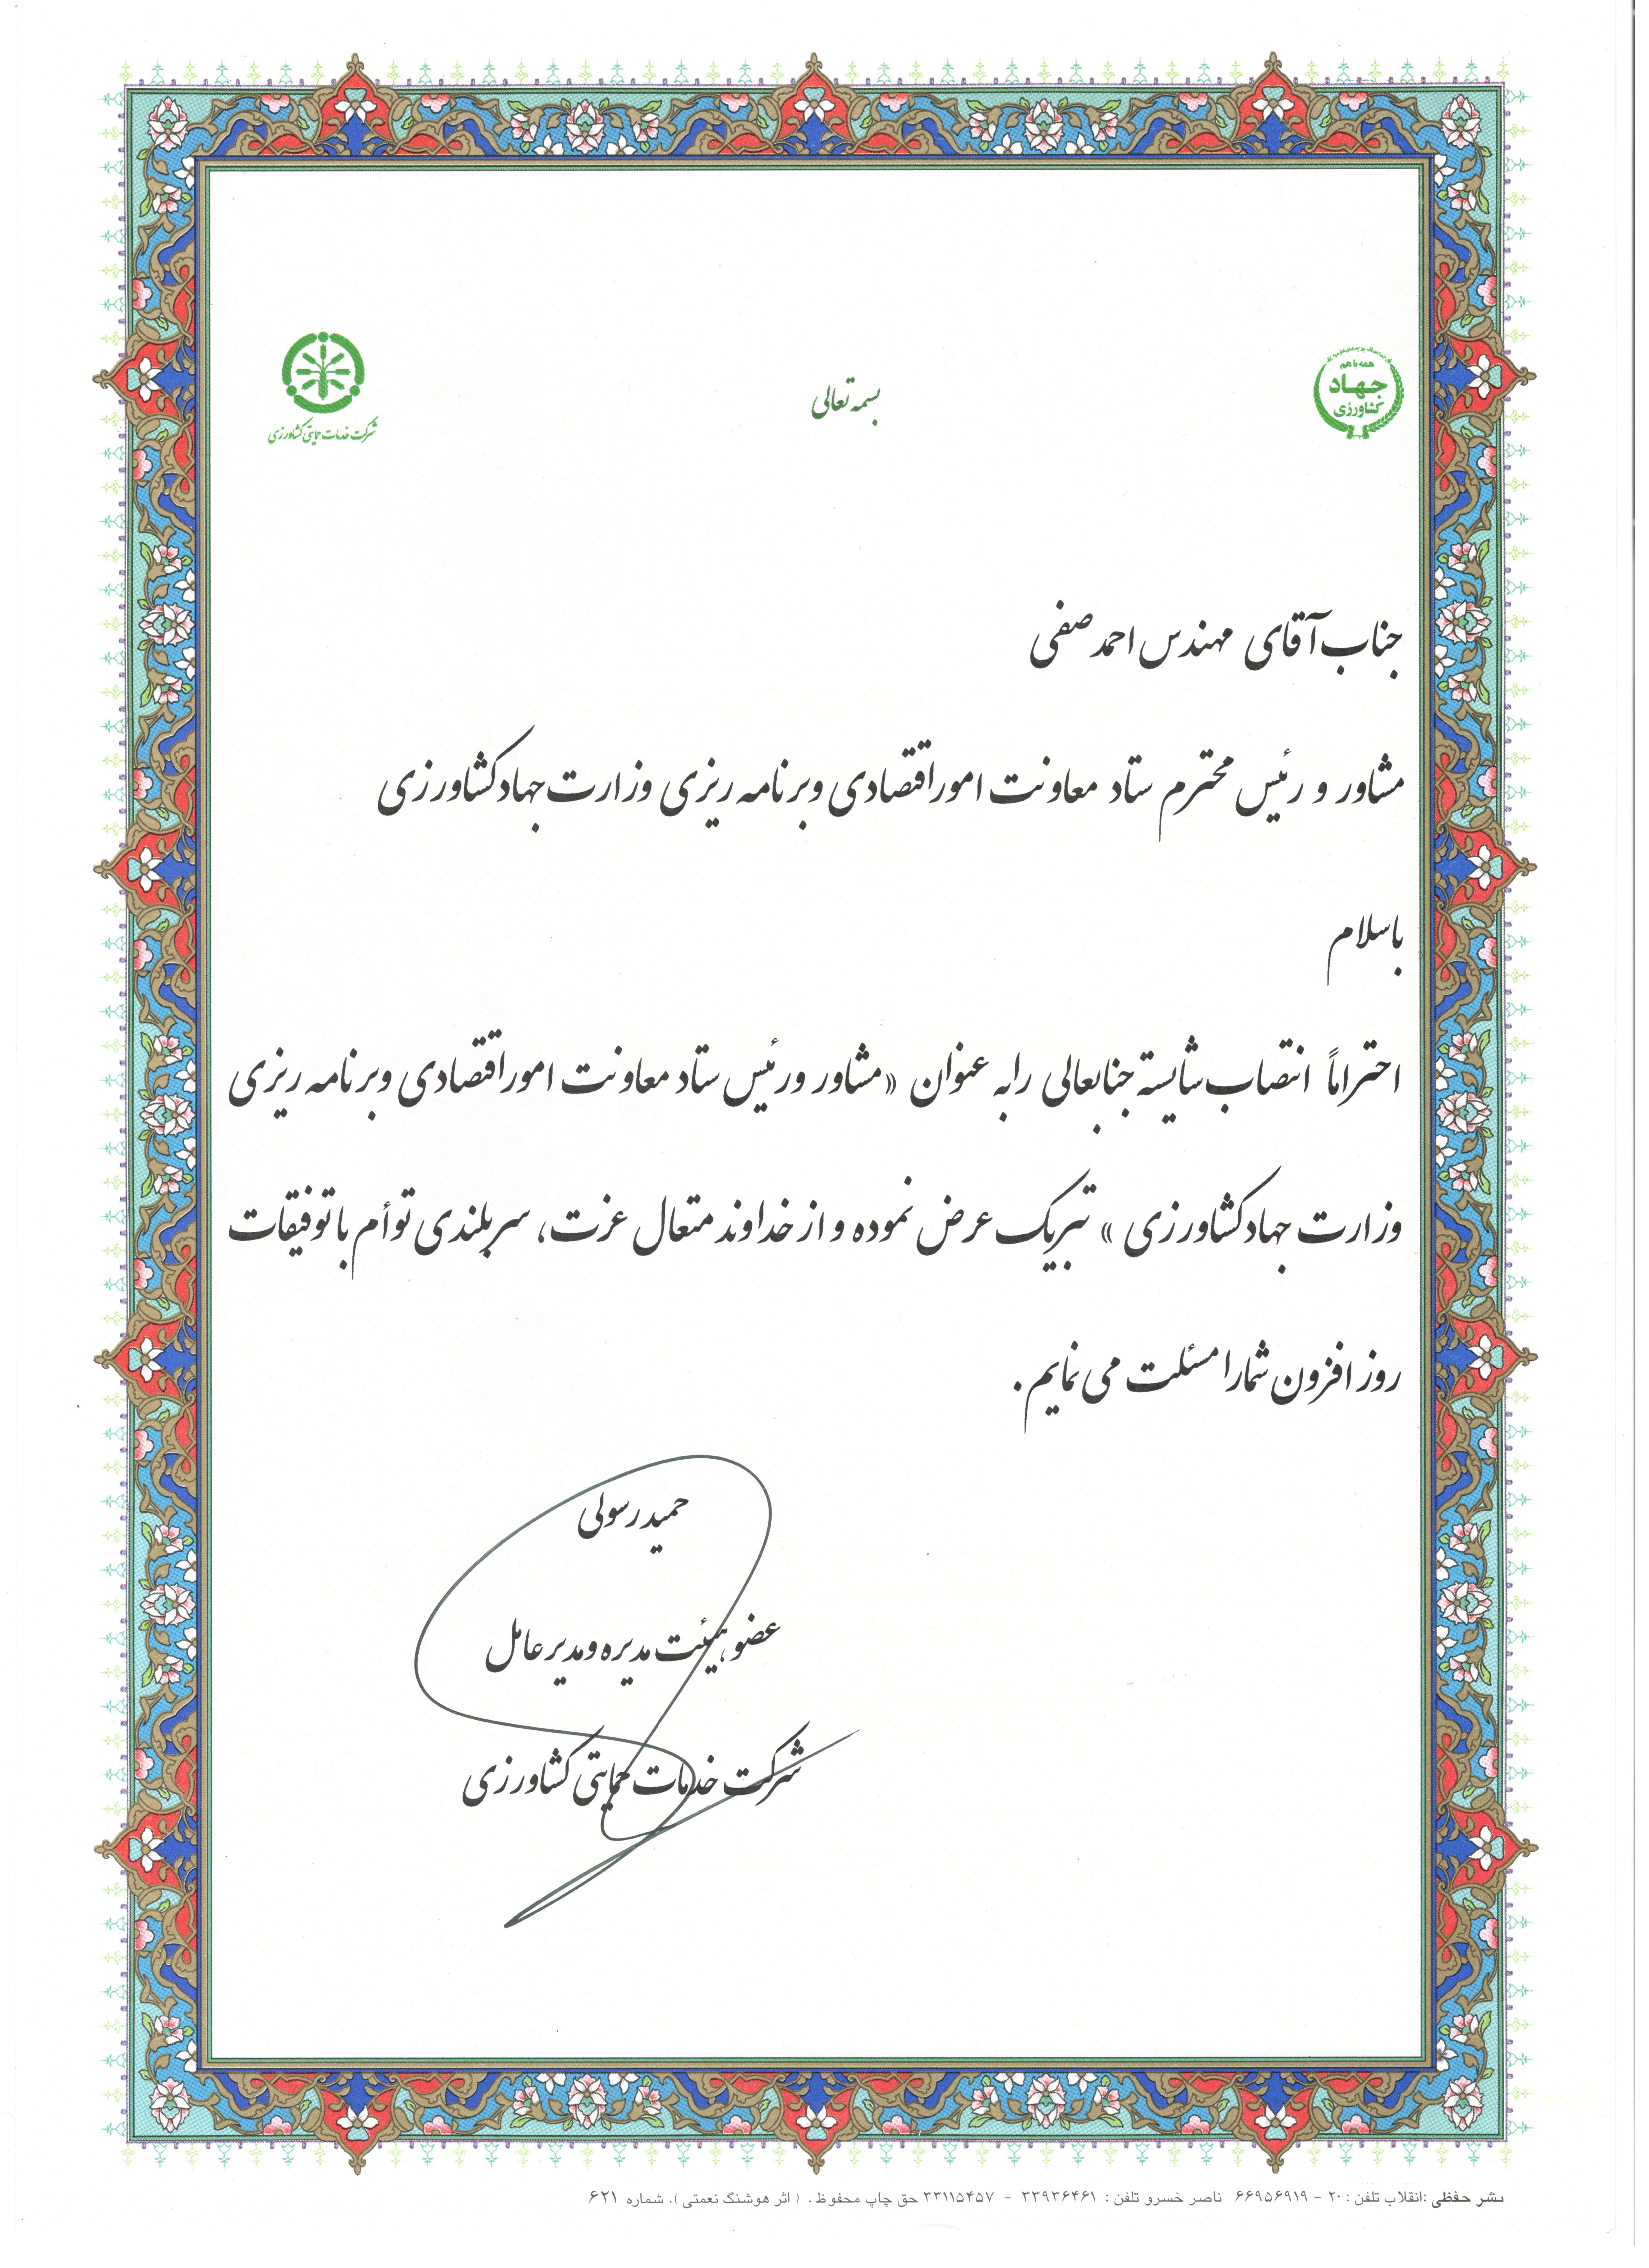 بسمه تعالی
همه با هم
جهاد
کشاورزی
شرکت خدمات حمایتی کشاورزی
جناب آقای مهندس احمد صفی
مشاور و رئیس محترم ستاد معاونت امور اقتصادی و برنامه ریزی وزارت جهاد کشاورزی
باسلام
احتراماً انتصاب شایسته جنابعالی را به عنوان «مشاور و رئیس ستاد معاونت امور اقتصادی و برنامه ریزی
وزارت جهاد کشاورزی» تبریک عرض نموده و از خداوند متعال عزت، سربلندی توأم با توفیقات
روز افزون شما را مسئلت می نمایم.
حمید رسولی
عضو هیئت مدیره و مدیر عامل
شرکت خدمات حمایتی کشاورزی
نشر حفظی: انقلاب تلفن: ۲۰ - ۶۶۹۵۶۹۱۹ ناصر خسرو تلفن: ۳۳۹۳۶۴۶۱ - ۳۳۱۱۵۴۵۷ حق چاپ محفوظ. (اثر هوشنگ نعمتی). شماره ۶۲۱